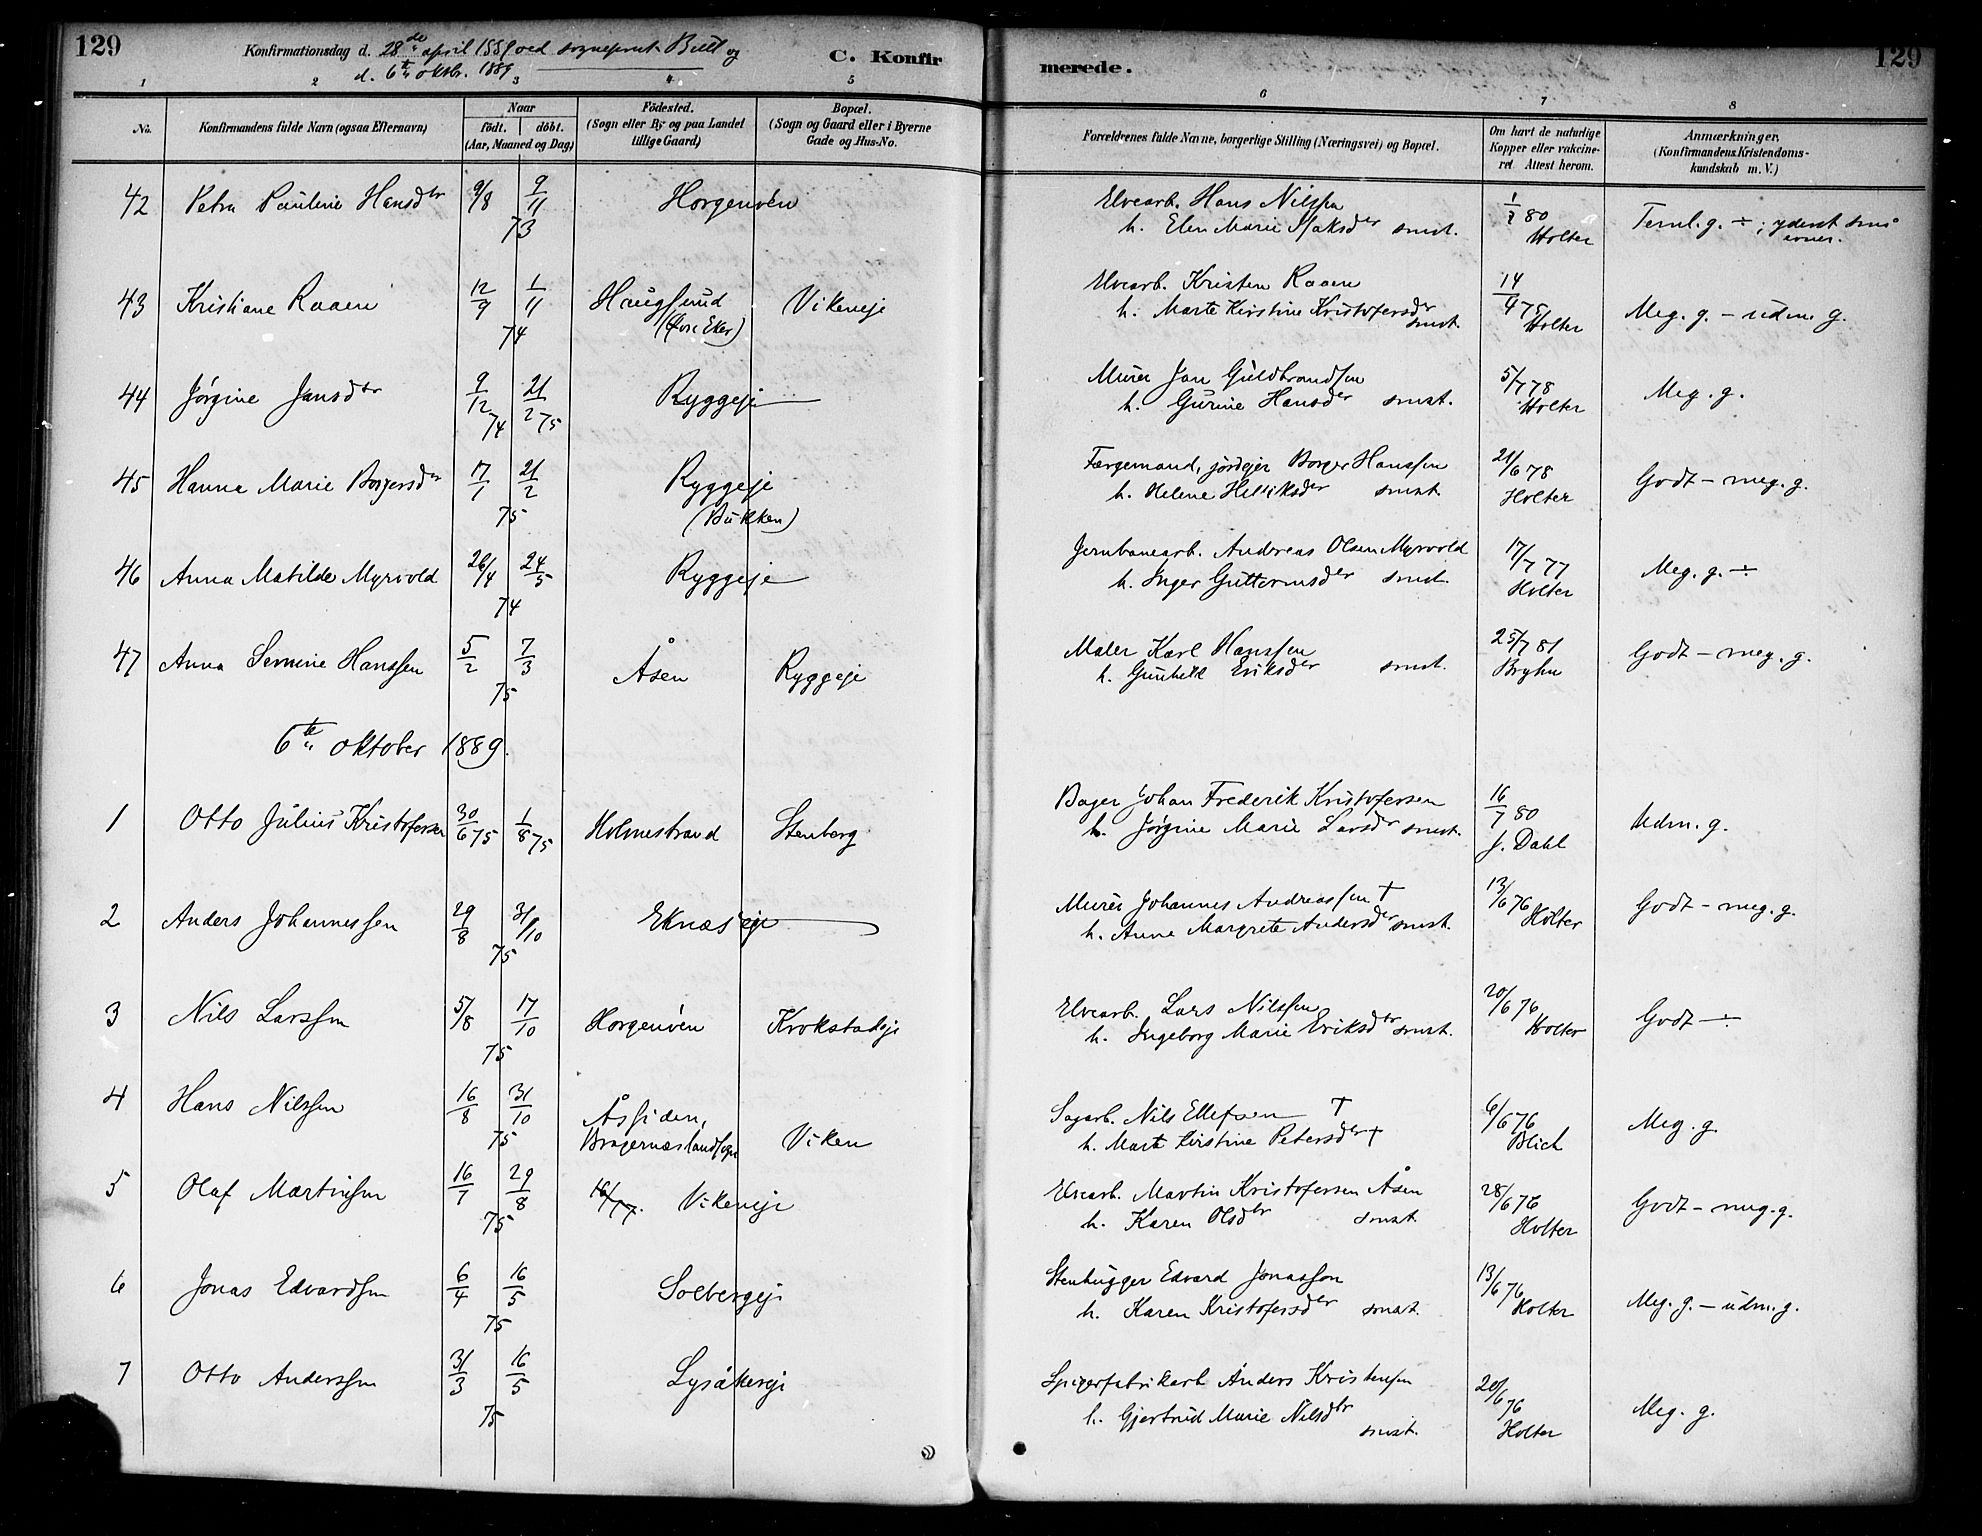 129
Konfirmationsdag d. 28de april 1889 ved sogneprest Bull og
d. 6te oktbr. 1889
C. Konfirmerede.
129
1 2 3 4 5 6 7 8
No.
Konfirmandens fulde Navn (ogsaa Efternavn)
Naar
födt. döbt.
(Aar, Maaned og Dag)
Födested.
(Sogn eller By og paa Landet
tillige Gaard)
Bopæl.
(Sogn og Gaard eller i Byerne
Gade og Hus-No.
Forældrenes fulde Navne, borgerlige Stilling (Næringsvei) og Bopæl.
Om havt de naturlige
Kopper eller vakcine-
ret. Attest herom.
Anmærkninger.
(Konfirmandens Kristendoms-
kundskab m. V.)
42 Petra Pauline Hansdtr 9/8 9/11 Horgenvén Elvearb. Hans Nilssen 1/7 80 Teml. g. ÷ ; yderst små
73 h. Elen Marie Isaksdtr smst. Holter evner.
43 Kristiane Raaen 12/9 1/11 Haugsund Vikeneje Elvearb. Kristen Raaen 14/9 75 Meg. g. – udm. g.
74 (Øvre Eker) h. Marte Kirstine Kristofersdtr smst. Holter
44 Jørgine Jansdtr 9/12 74 21/2 75 Ryggeje Murer Jan Guldbrandsen 5/7 78 Meg. g.
h. Gurine Hansdtr smst. Holter
45 Hanna Marie Borgersdtr 17/1 21/2 Ryggeje Færgemand, jordejer Borger Hanssen 21/6 78 Godt – meg. g.
75 (Bukken) h. Helene Helliksdtr smst. Holter
46 Anna Matilde Myrvold 26/4 24/5 Ryggeje Jernbanearb. Andreas Olsen Myrvold 17/7 77 Meg. g. ÷
74 h. Inger Guttormsdtr smst. Holter
47 Anna Semine Hanssen 5/2 7/3 Åsen Ryggeje Maler Karl Hanssen 25/7 81 Godt – meg. g.
75 h. Gunhild Eriksdtr smst. Bryhn
6te oktober 1889.
1 Otto Julius Kristofersen 30/6 75 1/8 75 Holmestrand Stenberg Bager Johan Frederik Kristofersen 16/7 80 Udm. g.
h. Jørgine Marie Larsdtr smst. J. Dahl
2 Anders Johannessen 29/8 31/10 Eknæs eje Murer Johannes Andreassen † 13/6 76 Godt – meg. g.
75 h. Anne Margrete Andersdtr smst. Holter
3 Nils Larssen 5/8 17/10 Horgenvén Krokstadeje Elvearb. Lars Nilssen 20/6 76 Godt ÷
75 h. Ingeborg Marie Eriksdtr smst. Holter
4 Hans Nilssen 16/8 31/10 Åssiden, Viken Sagarb. Nils Ellefsen † 6/6 76 Meg. g.
75 Bragernes landsogn h. Marte Kirstine Petersdtr † Blich
5 Olaf Martinsen 16/7 29/8 Vikeneje Elvearb. Martin Kristofersen Åsen 28/6 76 Godt – meg. g.
75 h. Karen Olsdtr smst. Holter
6 Jonas Edvardsen 6/4 16/5 Solbergeje Stenhugger Edvard Jonassen 13/6 76 Meg. g. – udm. g.
75 h. Karen Kristofersdtr smst. Holter
7 Otto Anderssen 31/3 16/5 Lysåkereje Spigerfabrikarb. Anders Kristensen 20/6 76 Meg. g.
75 h. Gjertrud Marie Nilsdtr smst. Holter